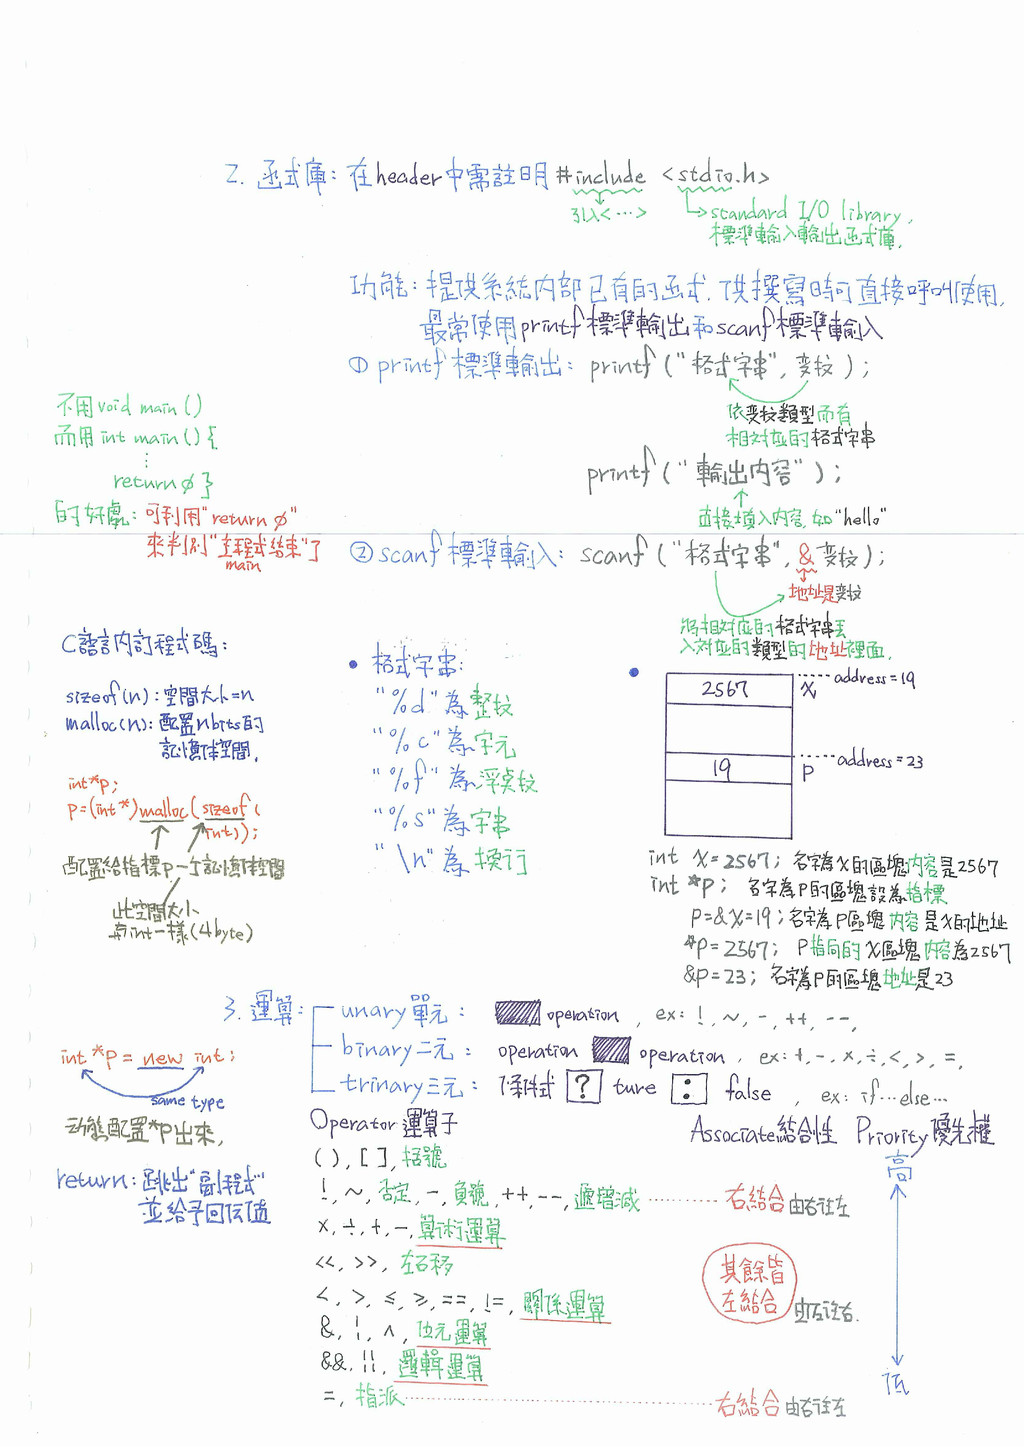 2. 函式庫: 在header中需註明 #include <stdio.h>
引入<…>
standard I/O library,
標準輸入輸出函式庫.
功能: 提供系統內部已有的函式, 供撰寫時可直接呼叫使用,
最常使用printf標準輸出和scanf標準輸入
① printf 標準輸出: printf ("格式字串", 變數);
依變數類型而有
相對應的格式字串
printf ("輸出內容");
直接填入內容, 如"hello"
不用 void main ()
而用 int main () {
⋮
return ø }
的好處: 可利用"return ø"
來判別"主程式結束"了
main
② scanf 標準輸入: scanf ("格式字串", & 變數);
地址是變數
將相對應的格式字串丟
入對應的類型的地址裡面.
C語言內訂程式碼:
sizeof(n): 空間大小=n
malloc(n): 配置n bits的
記憶体空間.
int*p;
p=(int*)malloc(sizeof(
int));
配置給指標p一个記憶体空間
此空間大小
與int一樣(4byte)
• 格式字串:
"%d" 為 整數
"%c" 為 字元
"%f" 為 浮點數
"%s" 為 字串
"\n" 為 換行
•
2567 x address=19
19 p address=23
int x=2567; 名字為x的區塊內容是2567
int *p; 名字為p的區塊設為指標
p=&x=19; 名字為p區塊內容是x的地址
*p=2567; p指向的x區塊內容為2567
&p=23; 名字為p的區塊地址是23
3. 運算:
unary 單元: operation , ex: !, ~, -, ++, --,
binary 二元: operation operation , ex: +, -, x, ÷, <, >, =,
trinary 三元: 條件式 ? ture : false , ex: if…else…
int *p = new int;
same type
动態配置*p出來,
return: 跳出"副程式"
並給予回傳值
Operator 運算子 Associate 結合性 Priority 優先權
( ), [ ], 括號 高
!, ~, 否定, -, 負號, ++, --, 遞增減 右結合 由右往左
x, ÷, +, -, 算術運算
<<, >>, 左右移
<, >, ≤, ≥, ==, !=, 關係運算
其餘皆
左結合 由左往右.
&, ¦, ^, 位元運算
&&, ¦¦, 邏輯運算
=, 指派 右結合 由右往左
低